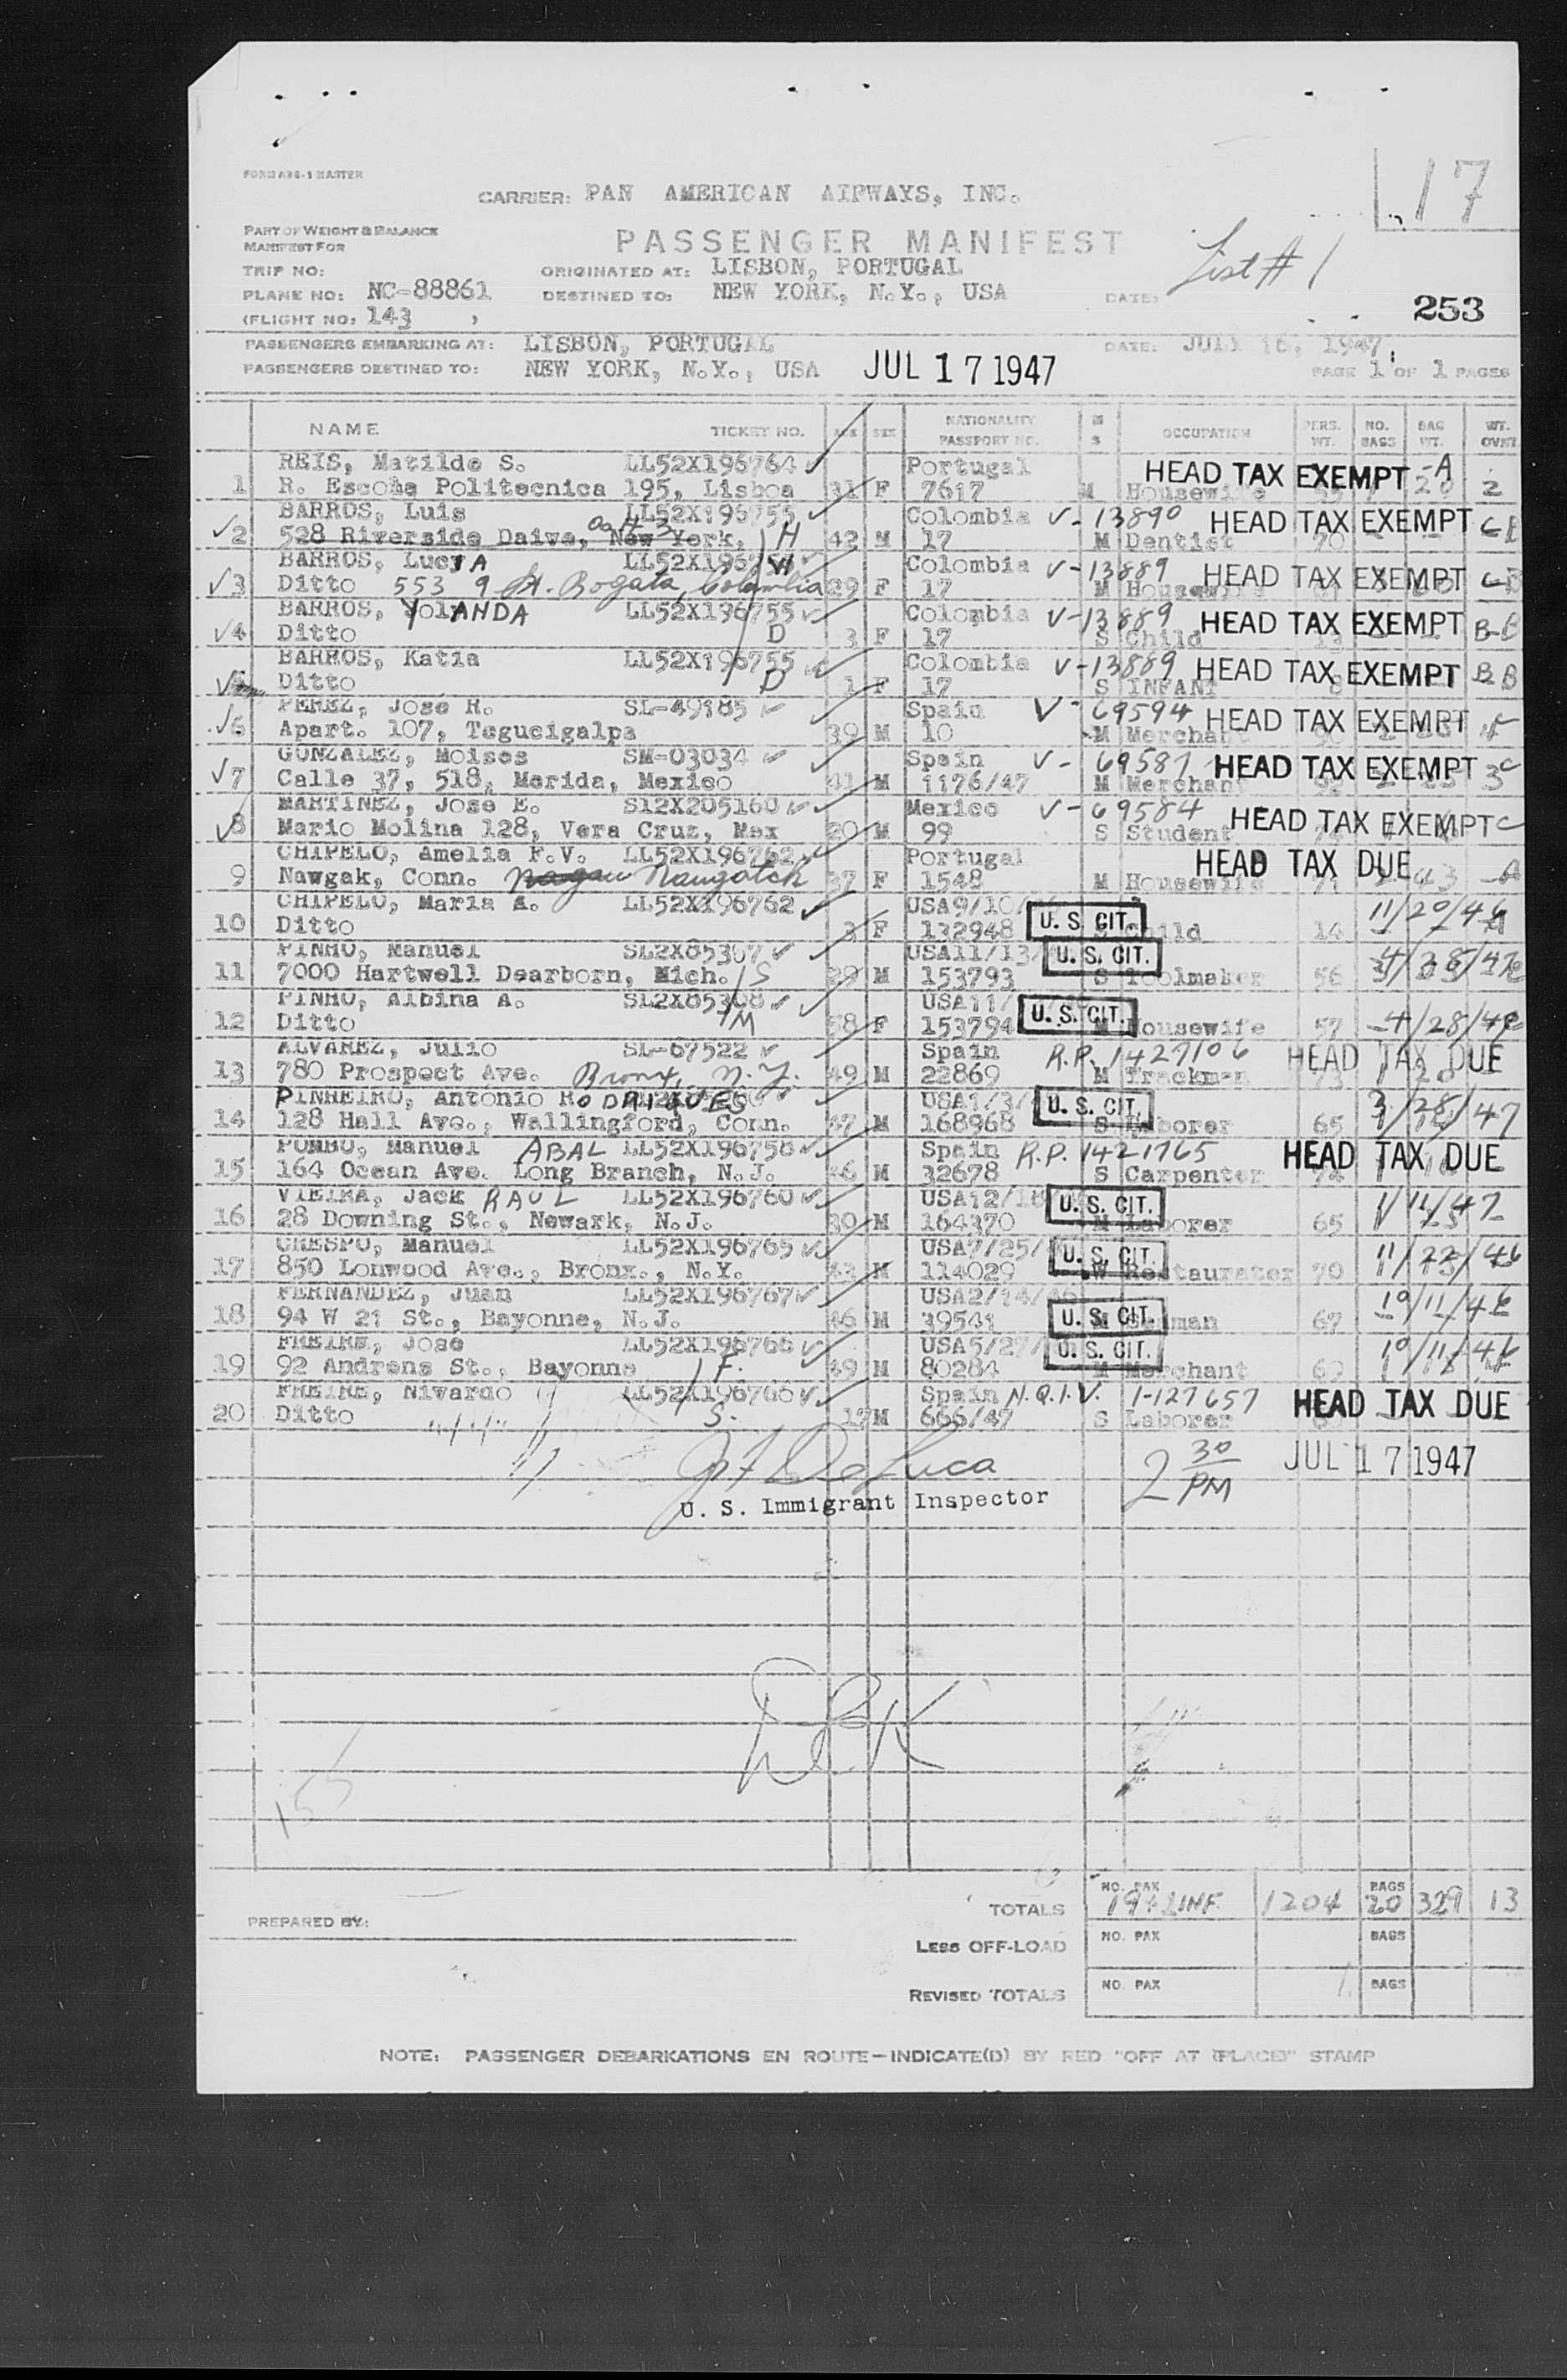 FORM A26-1 MASTER
17
CARRIER: PAN AMERICAN AIRWAYS, INC.
PART OF WEIGHT & BALANCE
MANIFEST FOR
PASSENGER MANIFEST
List # 1
TRIP NO:
ORIGINATED AT: LISBON, PORTUGAL
PLANE NO: NC-88861
DESTINED TO: NEW YORK, N.Y., USA
DATE:
253
(FLIGHT NO: 143 )
PASSENGERS EMBARKING AT: LISBON, PORTUGAL
DATE: JULY 16, 1947.
PASSENGERS DESTINED TO: NEW YORK, N.Y., USA JUL 17 1947
PAGE 1 OF 1 PAGES
NAME TICKET NO. AGE SEX NATIONALITY PASSPORT NO. M S OCCUPATION PERS. WT. NO. BAGS BAG WT. WT. OVWT
REIS, Matilde S. LL52X196764 Portugal HEAD TAX EXEMPT -A
1 R. Escola Politecnica 195, Lisboa 31 F 7617 M Housewife 20 2
BARROS, Luis LL52X196755 Colombia V-13890 HEAD TAX EXEMPT
2 528 Riverside Daive, New York, H 42 M 17 M Dentist 70
BARROS, LucIA LL52X1967 W Colombia V-13889 HEAD TAX EXEMPT
3 Ditto 553 9 St. Bogata, Colombia 29 F 17 M Housewife
BARROS, YolANDA LL52X196755 Colombia V-13889 HEAD TAX EXEMPT B-B
4 Ditto D 3 F 17 S Child 13
BARROS, Katia LL52X196755 Colombia V-13889 HEAD TAX EXEMPT B B
Ditto D 1 F 17 S INFANT 8
PEREZ, Jose R. SL-49185 Spain V-69594 HEAD TAX EXEMPT
6 Apart. 107, Tegucigalpa 39 M 10 M Merchant
GONZALEZ, Moises SM-03034 Spain V-69587 HEAD TAX EXEMPT
7 Calle 37, 518, Merida, Mexico 41 M 1176/47 M Merchant 92 3
MARTINEZ, Jose E. S12X205160 Mexico V-69584 HEAD TAX EXEMPT C
8 Mario Molina 128, Vera Cruz, Mex 20 M 99 S Student
CHIPELO, Amelia F.V. LL52X196762 Portugal HEAD TAX DUE
9 Nawgak, Conn. Naugatck 37 F 1548 M Housewife 71 43 -A
CHIPELO, Maria A. LL52X196762 USA9/10/ U. S. CIT. 11/20/46
10 Ditto 3 F 132948 Child 14
PINHO, Manuel SL2X85307 USA11/13/ U. S. CIT. 4/28/47
11 7000 Hartwell Dearborn, Mich. S 29 M 153793 S Toolmaker 56
PINHO, Albina A. SL2X85308 USA11/ U. S. CIT.
12 Ditto M 58 F 153794 Housewife 57 4/28/47
ALVAREZ, Julio SL-67522 Spain R.P. 1427106 HEAD TAX DUE
13 780 Prospect Ave. Bronx, N.Y. 49 M 22869 M Trackman 73
PINHEIRO, Antonio RoDRIQUES USA1/3/ U. S. CIT. 3/28/47
14 128 Hall Ave., Wallingford, Conn. 47 M 168968 S Laborer 65
POMBO, Manuel ABAL LL52X196758 Spain R.P. 1421765 HEAD TAX DUE
15 164 Ocean Ave. Long Branch, N.J. 46 M 32678 S Carpenter 74
VIEIRA, Jack RAUL LL52X196760 USA12/18/ U. S. CIT. 1/11/47
16 28 Downing St., Newark, N.J. 30 M 164370 M Laborer 65
CRESPO, Manuel LL52X196765 USA7/25/ U. S. CIT. 11/22/46
17 850 Lonwood Ave., Bronx., N.Y. 43 M 114029 W Restaurater 70
FERNANDEZ, Juan LL52X196767 USA2/14/46 U. S. CIT. 10/11/46
18 94 W 21 St., Bayonne, N.J. 46 M 39541 Seaman 67
FREIRE, Jose LL52X196766 USA5/27/ U. S. CIT. 10/11/46
19 92 Andrens St., Bayonne F. 49 M 80284 M Merchant 69
FREIRE, Nivardo LL52X196766 Spain N.Q.I.V. I-127657 HEAD TAX DUE
20 Ditto S. 17 M 666/47 S Laborer
DeLuca 2 30 PM JUL 17 1947
U. S. Immigrant Inspector
155
TOTALS NO. PAX 19+1 INF. 1204 BAGS 20 329 13
PREPARED BY:
LESS OFF-LOAD NO. PAX BAGS
REVISED TOTALS NO. PAX BAGS
NOTE: PASSENGER DEBARKATIONS EN ROUTE—INDICATE(D) BY RED "OFF AT (PLACE)" STAMP